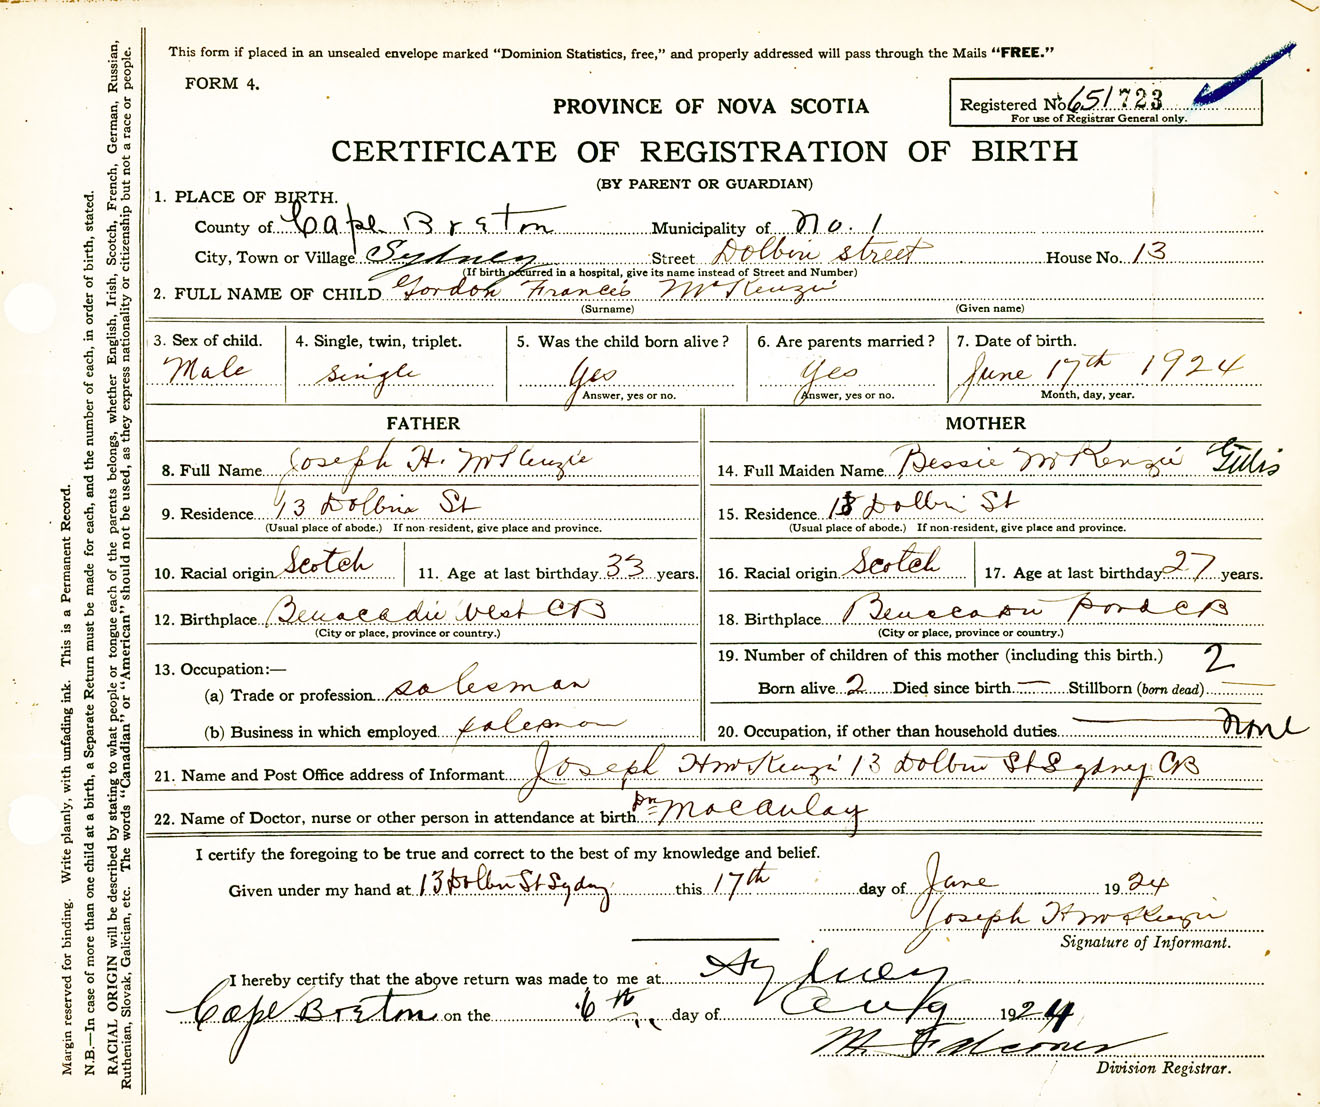 This form if placed in an unsealed envelope marked "Dominion Statistics, free," and properly addressed will pass through the Mails "FREE."
FORM 4.
PROVINCE OF NOVA SCOTIA
Registered No. 651723
For use of Registrar General only.
CERTIFICATE OF REGISTRATION OF BIRTH
(BY PARENT OR GUARDIAN)
1. PLACE OF BIRTH.
County of Cape Breton Municipality of No. 1
City, Town or Village Sydney Street Dolbin Street House No. 13
(If birth occurred in a hospital, give its name instead of Street and Number)
2. FULL NAME OF CHILD Gordon Francis McKenzie
(Surname) (Given name)
3. Sex of child. 4. Single, twin, triplet. 5. Was the child born alive? 6. Are parents married? 7. Date of birth.
Male single Yes Yes June 17th 1924
Answer, yes or no. Answer, yes or no. Month, day, year.
FATHER MOTHER
8. Full Name Joseph H. McKenzie 14. Full Maiden Name Bessie McKenzie Gillis
9. Residence 13 Dolbin St 15. Residence 13 Dolbin St
(Usual place of abode.) If non-resident, give place and province. (Usual place of abode.) If non-resident, give place and province.
10. Racial origin Scotch 11. Age at last birthday 33 years. 16. Racial origin Scotch 17. Age at last birthday 27 years.
12. Birthplace Benacadie West CB 18. Birthplace Pond CB
(City or place, province or country.) (City or place, province or country.)
19. Number of children of this mother (including this birth.) 2
13. Occupation:—
(a) Trade or profession salesman Born alive 2 Died since birth — Stillborn (born dead) —
(b) Business in which employed salesman 20. Occupation, if other than household duties none
21. Name and Post Office address of Informant Joseph H McKenzie 13 Dolbin St Sydney CB
22. Name of Doctor, nurse or other person in attendance at birth Dr Macaulay
I certify the foregoing to be true and correct to the best of my knowledge and belief.
Given under my hand at 13 Dolbin St Sydney this 17th day of June 1924
Joseph H McKenzie
Signature of Informant.
I hereby certify that the above return was made to me at Sydney
Cape Breton on the 6th day of Aug 1924
M. Falconer
Division Registrar.
Margin reserved for binding. Write plainly, with unfading ink. This is a Permanent Record.
N.B.—In case of more than one child at a birth, a Separate Return must be made for each, and the number of each, in order of birth, stated.
RACIAL ORIGIN will be described by stating to what people or tongue each of the parents belongs, whether English, Irish, Scotch, French, German, Russian,
Ruthenian, Slovak, Galician, etc. The words "Canadian" or "American" should not be used, as they express nationality or citizenship but not a race or people.